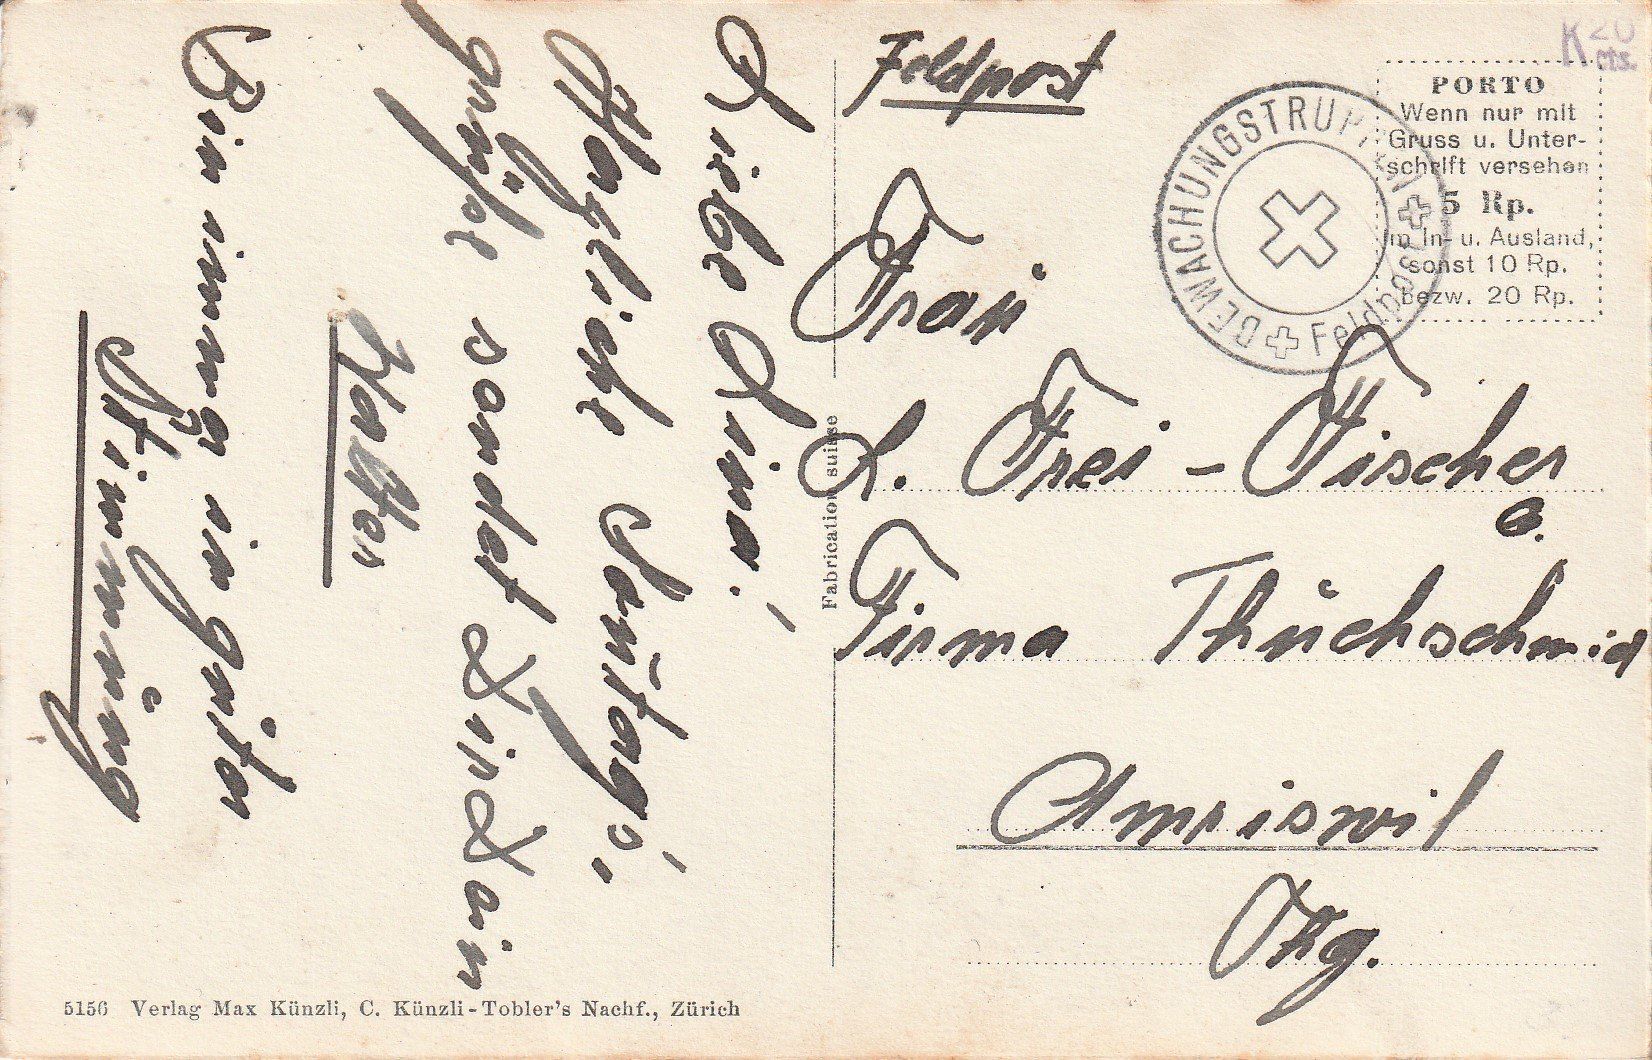 Feldpost
K 20
cts.
PORTO
Wenn nur mit
Gruss u. Unter-
schrift versehen
5 Rp.
im In- u. Ausland,
sonst 10 Rp.
bezw. 20 Rp.
BEWACHUNGSTRUPPEN
Feldpost
Frau
L. Frei-Fischer
Firma Thuchschmid
Amriswil
Thg.
Liebe Lina!
Herzliche Sontags-
grüße sendet Dir Dein
Walter
Bin immer in guter
Stimmung
Fabrication suisse
5156 Verlag Max Künzli, C. Künzli-Tobler's Nachf., Zürich